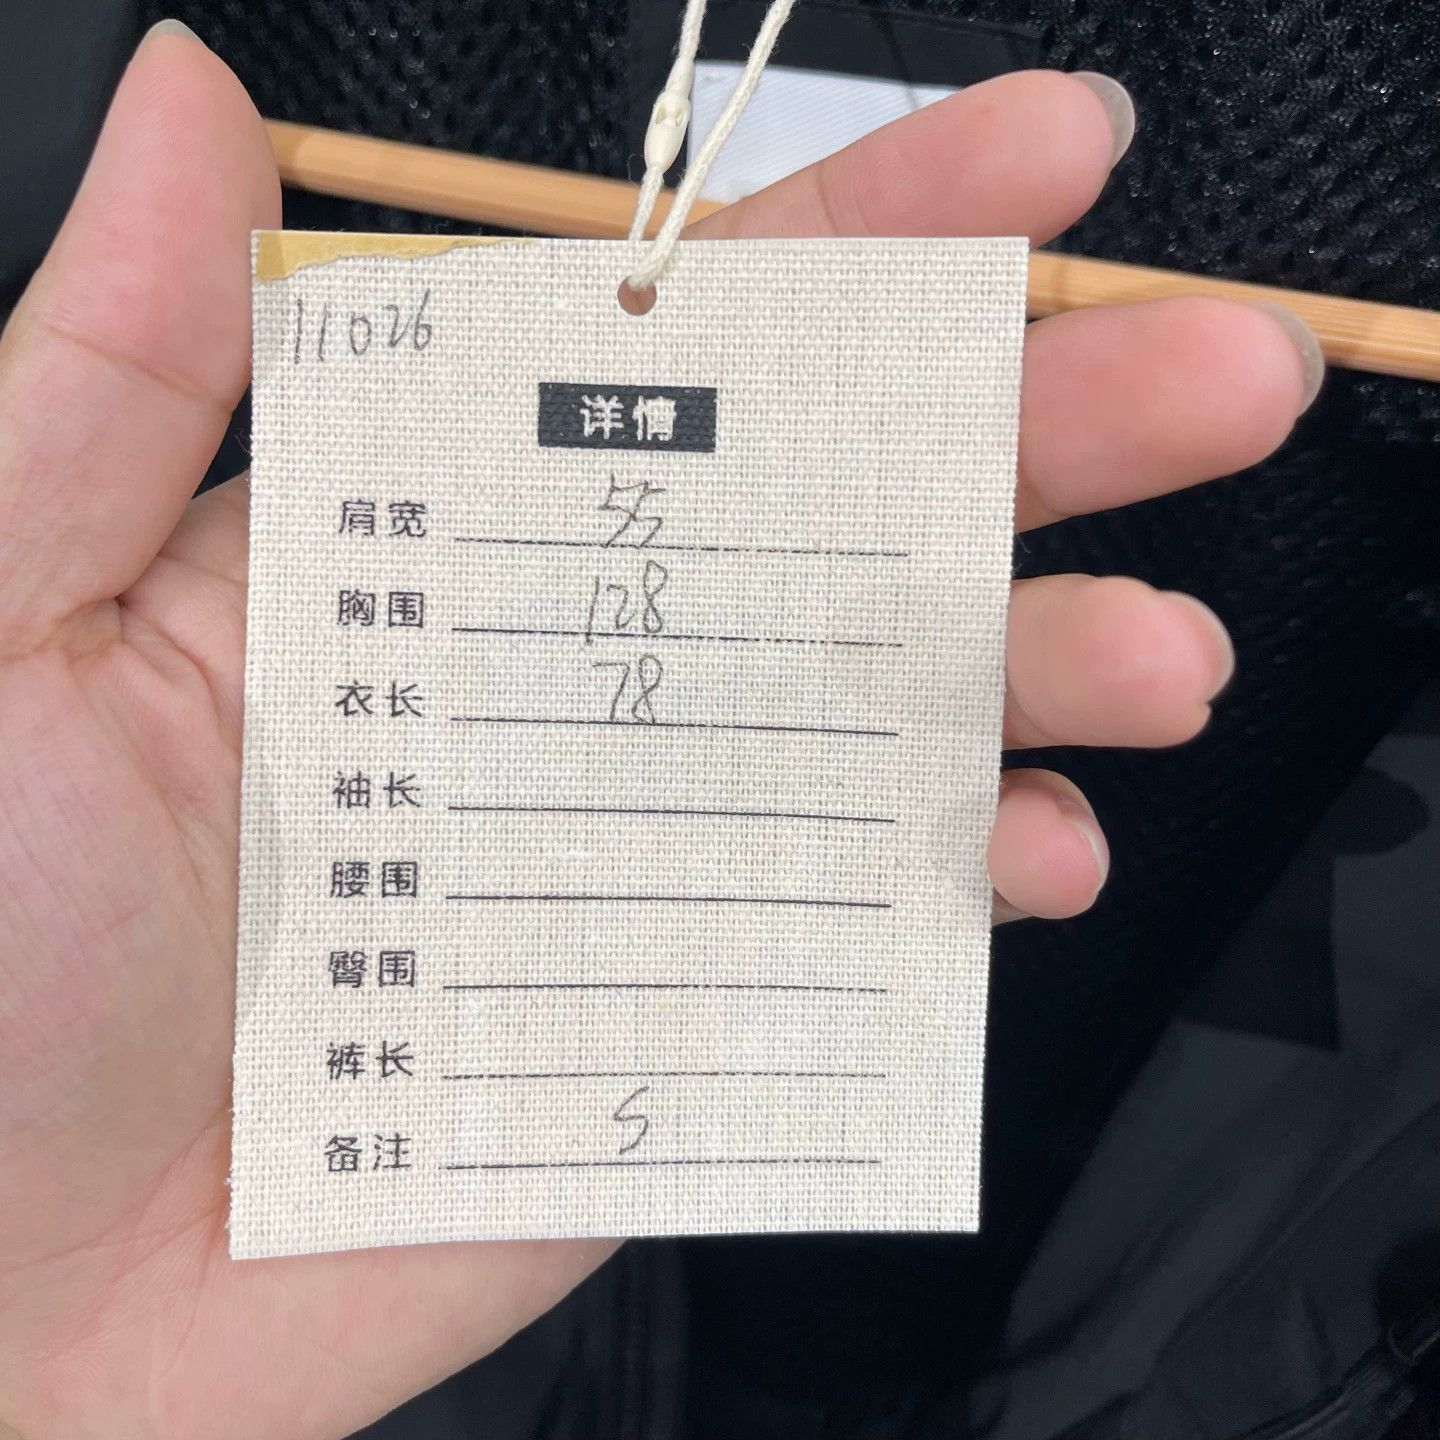 11026
详情
肩宽 55
胸围 128
衣长 78
袖长
腰围
臀围
裤长
备注 S